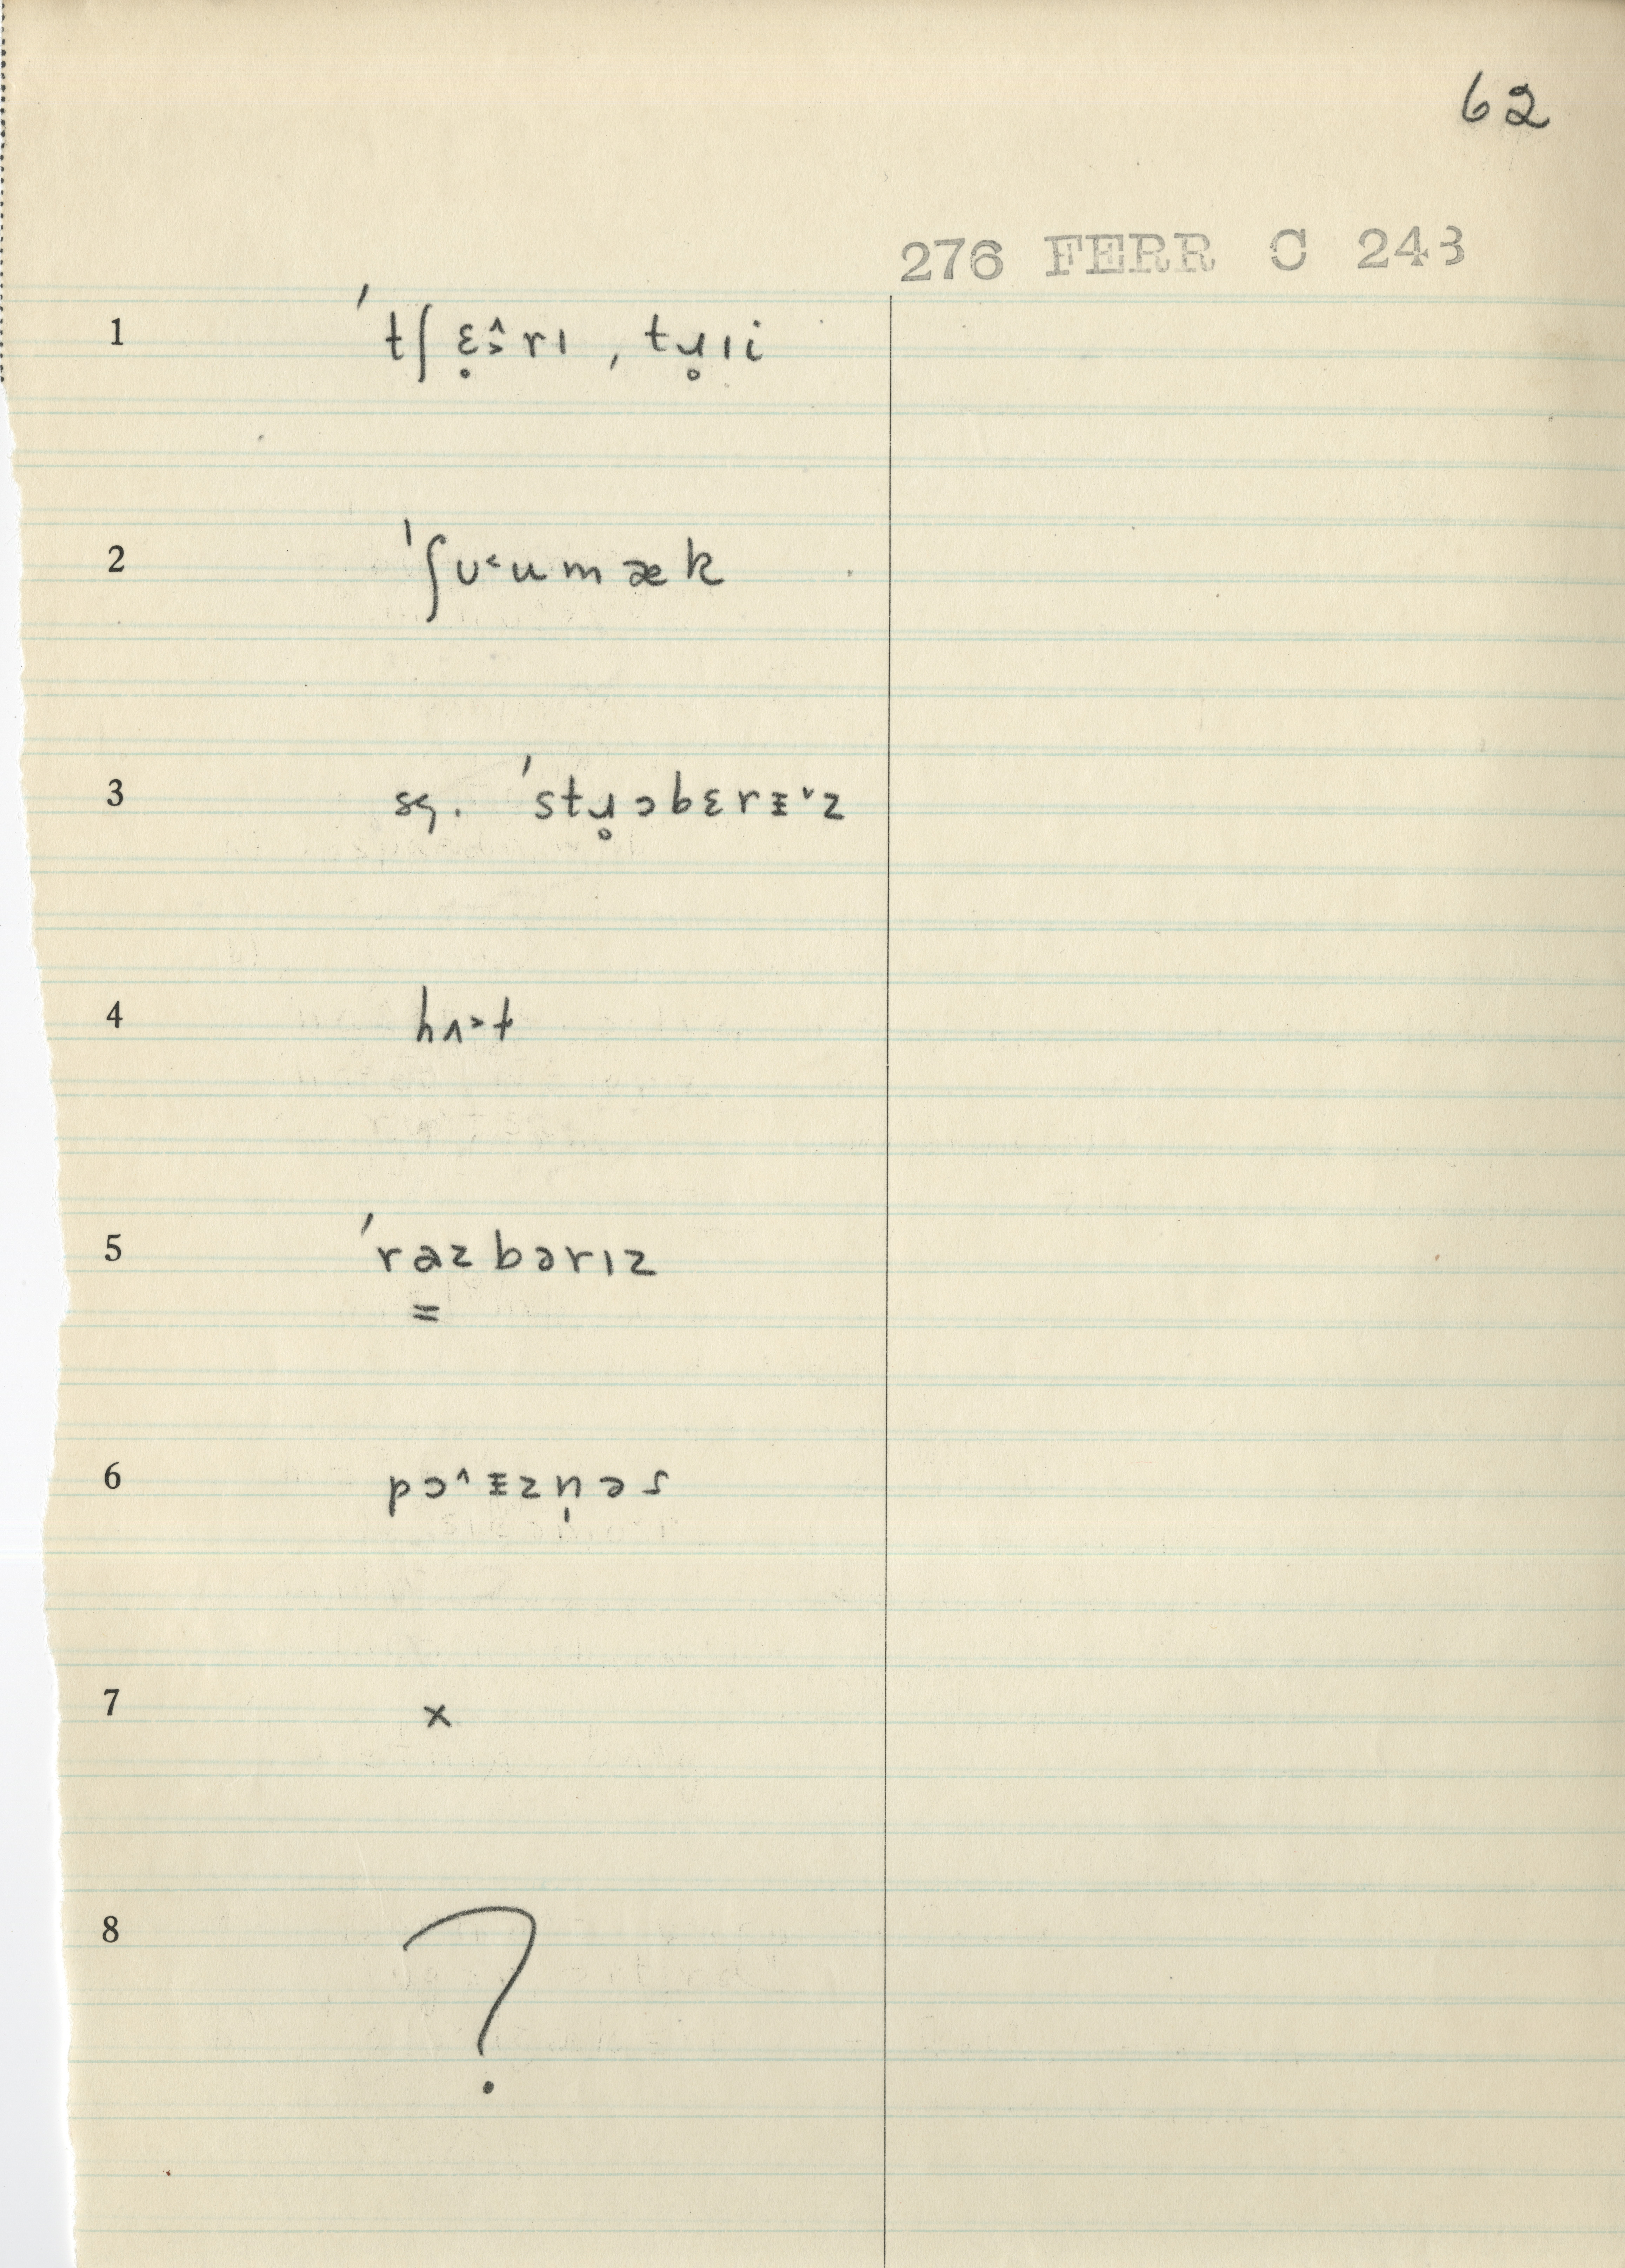 62
276 FERR C 243
1 ˈtʃɛ̣ɔ̂rɪ , tɹ̥ɪi
2 ˈʃʊ˂ʉmæk
3 sg. ˈstɹ̥ɔbɛrɪ˅z
4 hʌ˃t
5 ˈrazbərɪz
6 pɔ˄ɪzn̩əs
7 x
8 ?